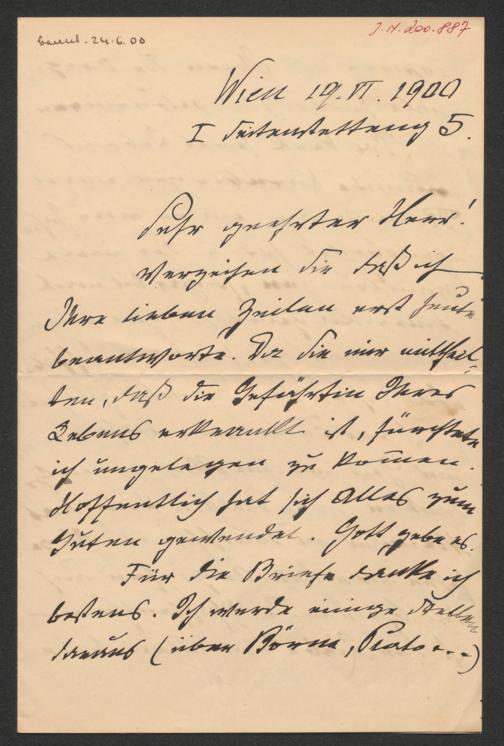 beantw. 24.6.00
J.N. 200.887
Wien 19. VI. 1900
I Seitenstetteng 5.
Sehr geehrter Herr!
Verzeihen Sie daß ich
Ihre lieben Zeilen erst heute
beantworte. Da Sie mir mittheil-
ten, daß die Gefährtin Ihres
Lebens erkrankt ist, fürchtete
ich ungelegen zu kom̄en.
Hoffentlich hat sich Alles zum
Guten gewendet. Gott gebe es.
Für die Briefe danke ich
bestens. Ich werde einige Stellen
daraus (über Börne, Plato...)